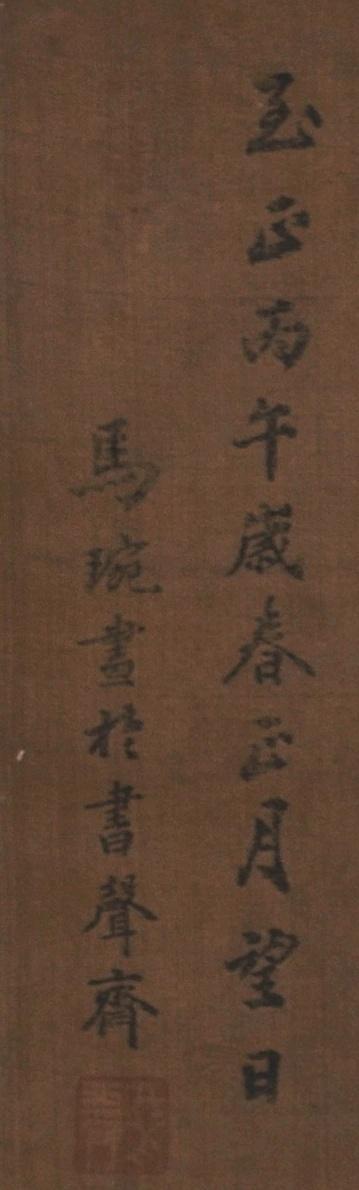 至正丙午歲春正月望日
馬琬畫於書聲齋